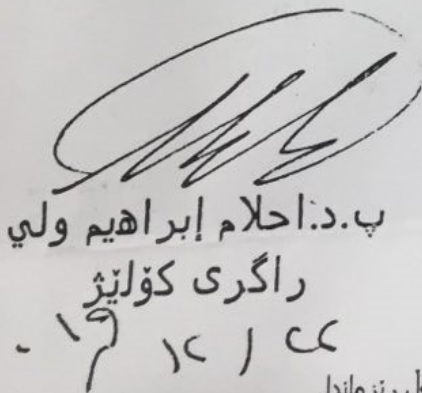 پ.د.احلام إبراهيم ولي
راگری کۆلێژ
٢٢ / ١٢